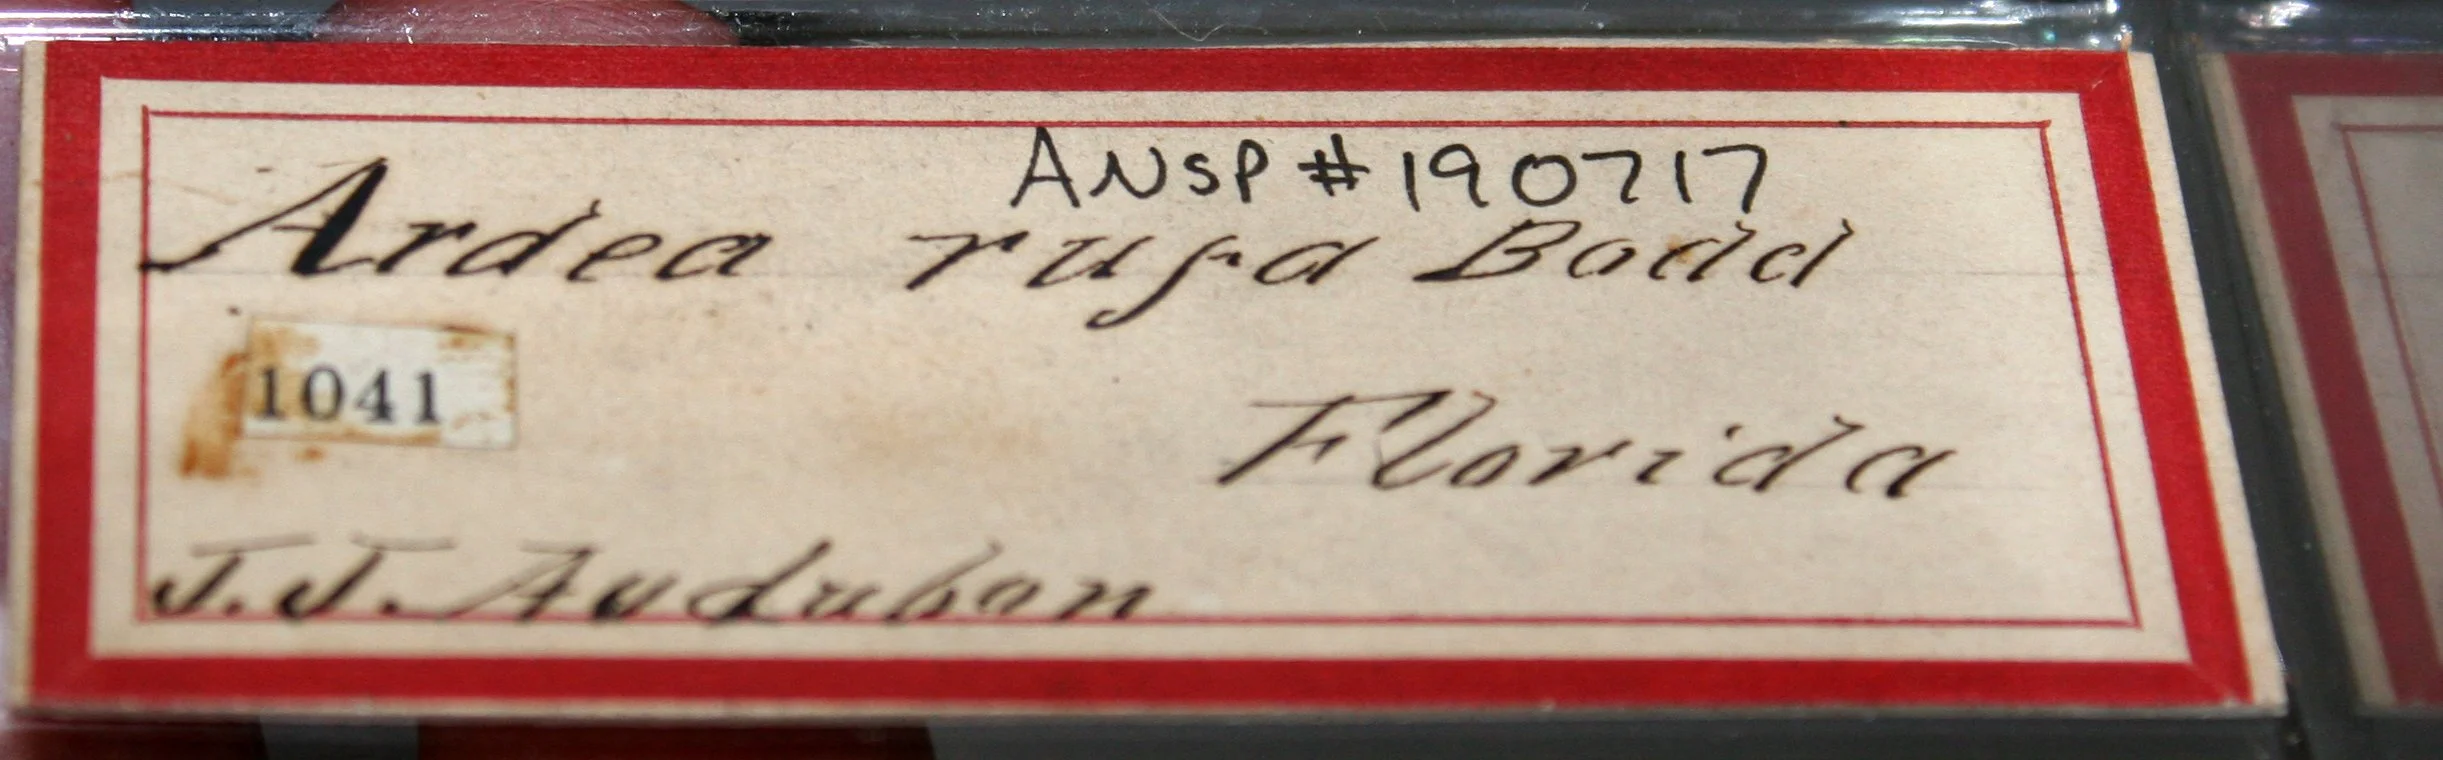 ANSP # 190717
Ardea rufa Bodd
1041
Florida
J. J. Audubon